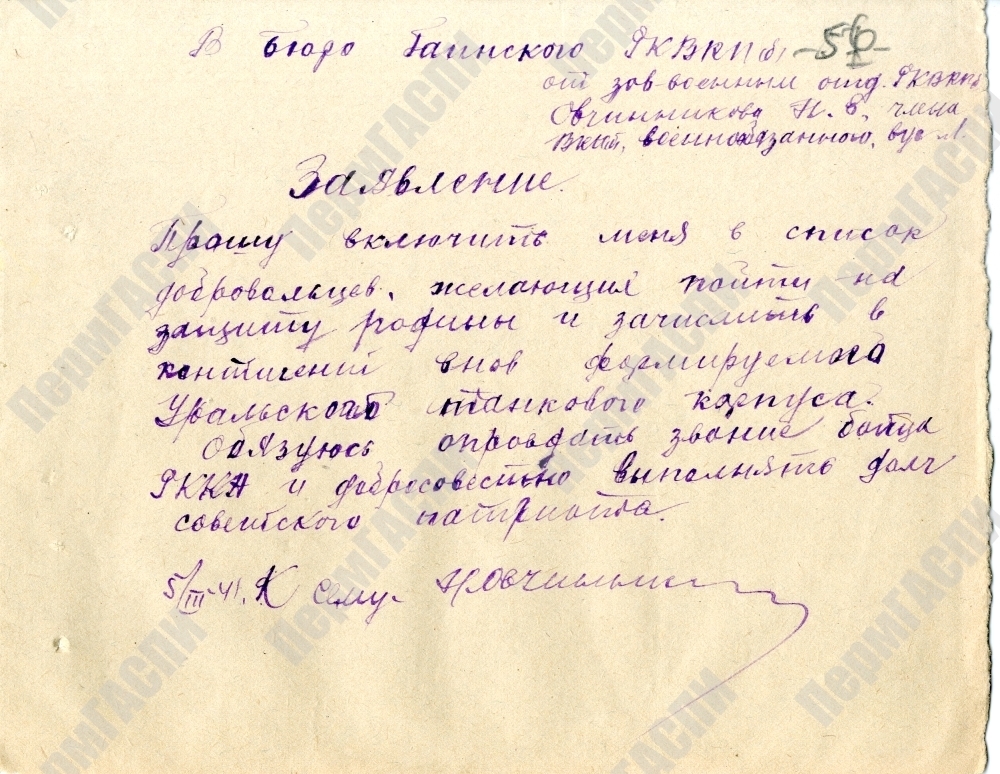 В бюро Гаинского РКВКПб
от зав военным отд. РКВКПб
Овчинникова Н. Е. члена
ВКПб, военнообязанного, вус
Заявление.
Прошу включить меня в список
добровольцев, желающих пойти на
защиту родины и зачислить в
контигент внов формируемого
Уральского танкового корпуса.
Обязуюсь оправдать звание бойца
РККА и добросовестно выполнять долг
советского патриота.
К сему. НОвчинник
ПермГАСПИ